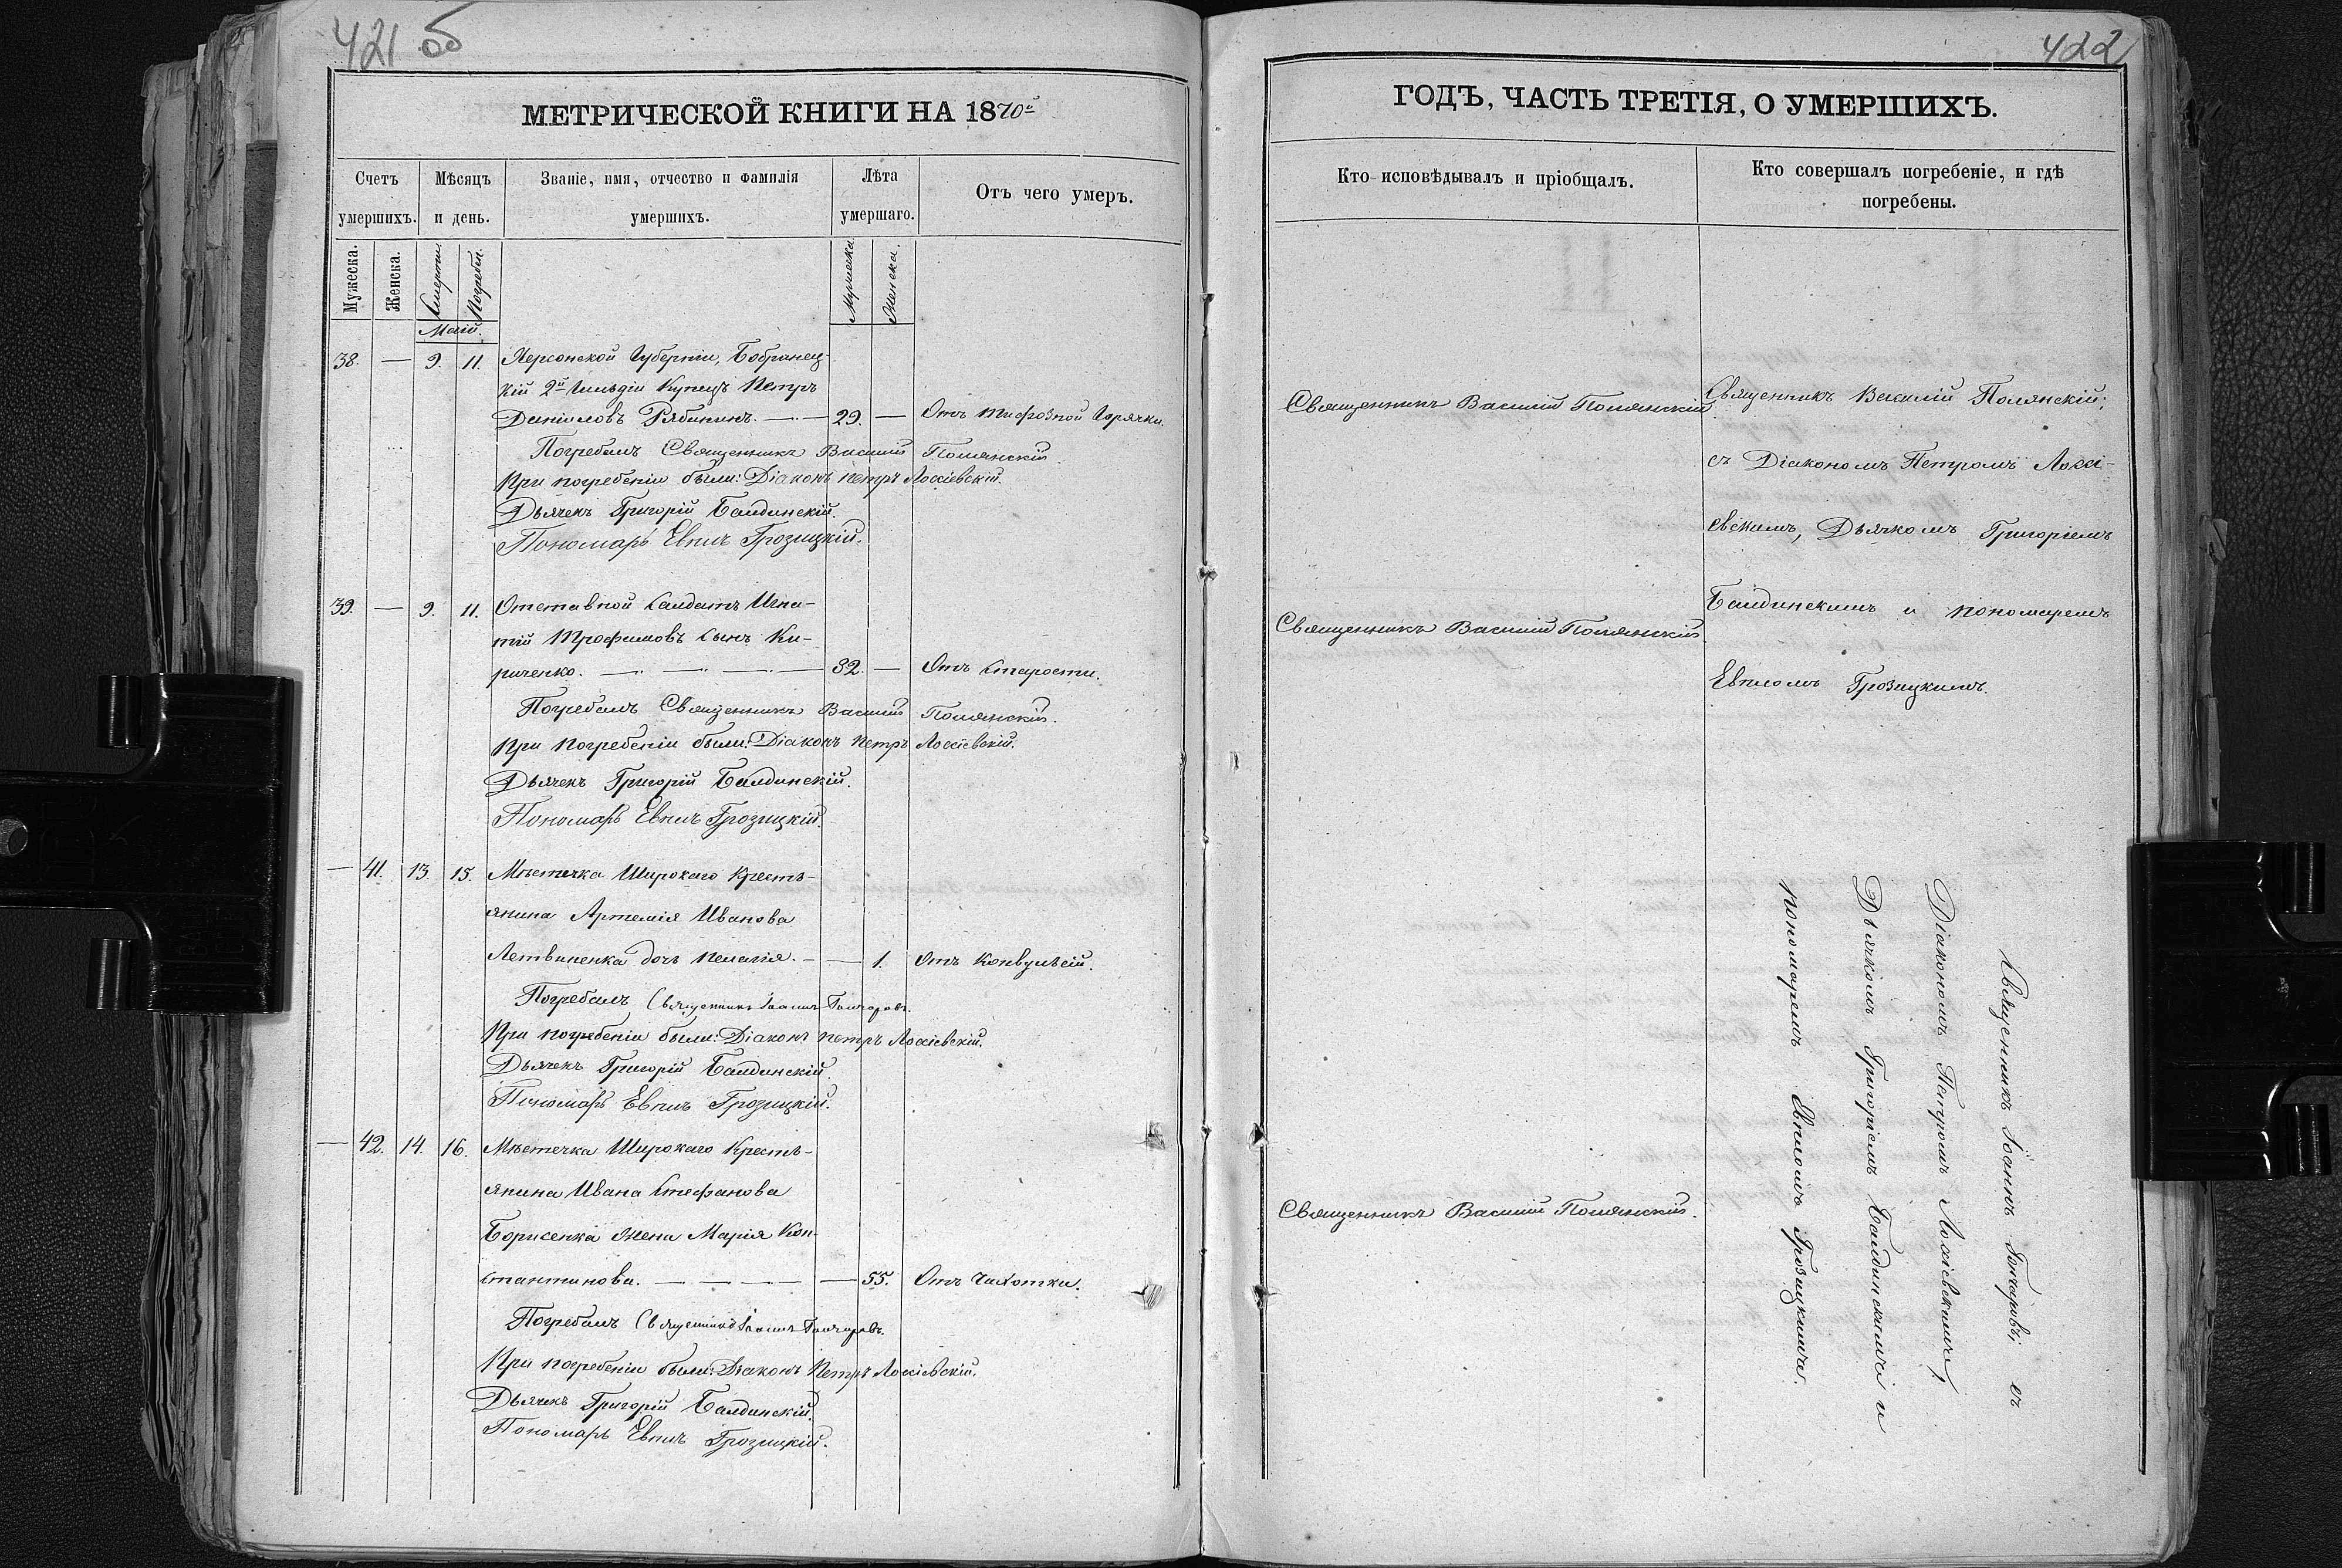 421 об
МЕТРИЧЕСКОЙ КНИГИ НА 1870й
Счетъ умершихъ.
Мѣсяцъ и день.
Званіе, имя, отчество и фамилія умершихъ.
Лѣта умершаго.
Отъ чего умеръ.
Мужеска.
Женска.
Смерти.
Погребен.
Мужеска.
Женска.
Маій.
38. — 9. 11. Херсонской Губерніи, Бобринец-
кій 2й Гильдіи Купецъ Петръ
Даниловъ Рябининъ. — — 29. — Отъ тифозной горячки.
Погребалъ Священникъ Василій Полянскій.
При погребеніи были: Діаконъ Петръ Лоссіевскій.
Дьячекъ Григорій Балдинскій.
Пономарь Евплъ Грозицкій.
39. — 9. 11. Отставной Солдатъ Игна-
тій Трофимовъ сынъ Ки-
риченко. — — — — 82. — Отъ старости.
Погребалъ Священникъ Василій Полянскій.
При погребеніи были: Діаконъ Петръ Лоссіевскій.
Дьячекъ Григорій Балдинскій.
Пономарь Евплъ Грозицкій.
— 41. 13. 15. Мѣстечка Широкаго Кресть-
янина Артемія Иванова
Летвиненка дочь Пелагія. — — 1. Отъ конвульсій.
Погребалъ Священникъ Іоаннъ Гончаровъ.
При погребеніи были: Діаконъ Петръ Лоссіевскій.
Дьячекъ Григорій Балдинскій.
Пономарь Евплъ Грозицкій.
— 42. 14. 16. Мѣстечка Широкаго Кресть-
янина Ивана Стефанова
Борисенка жена Марія Кон-
стантинова. — — — — — 55. Отъ чахотки.
Погребалъ Священникъ Іоаннъ Гончаровъ.
При погребеніи были: Діаконъ Петръ Лоссіевскій.
Дьячекъ Григорій Балдинскій.
Пономарь Евплъ Грозицкій.
422
ГОДЪ, ЧАСТЬ ТРЕТІЯ, О УМЕРШИХЪ.
Кто исповѣдывалъ и пріобщалъ.
Кто совершалъ погребеніе, и гдѣ
погребены.
Священникъ Василій Полянскій
Священникъ Василій Полянскій;
съ Діакономъ Петромъ Лоссі-
евскимъ, Дьячкомъ Григоріемъ
Балдинскимъ и пономаремъ
Евпломъ Грозицкимъ.
Священникъ Василій Полянскій
Священникъ Іоаннъ Гончаровъ, съ
Діакономъ Петромъ Лоссіевскимъ,
Дьячкомъ Григоріемъ Балдинскимъ и
пономаремъ Евпломъ Грозицкимъ.
Священникъ Василій Полянскій.